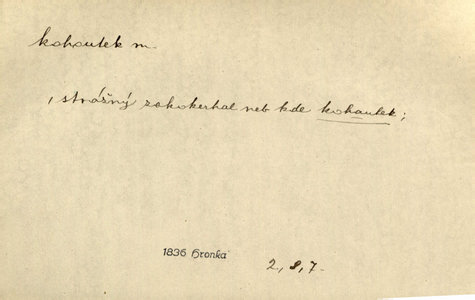 kohoutek m.
, strážný zakokerhal neb kde kohautek ;
1836 Hronka
2, 8, 7.